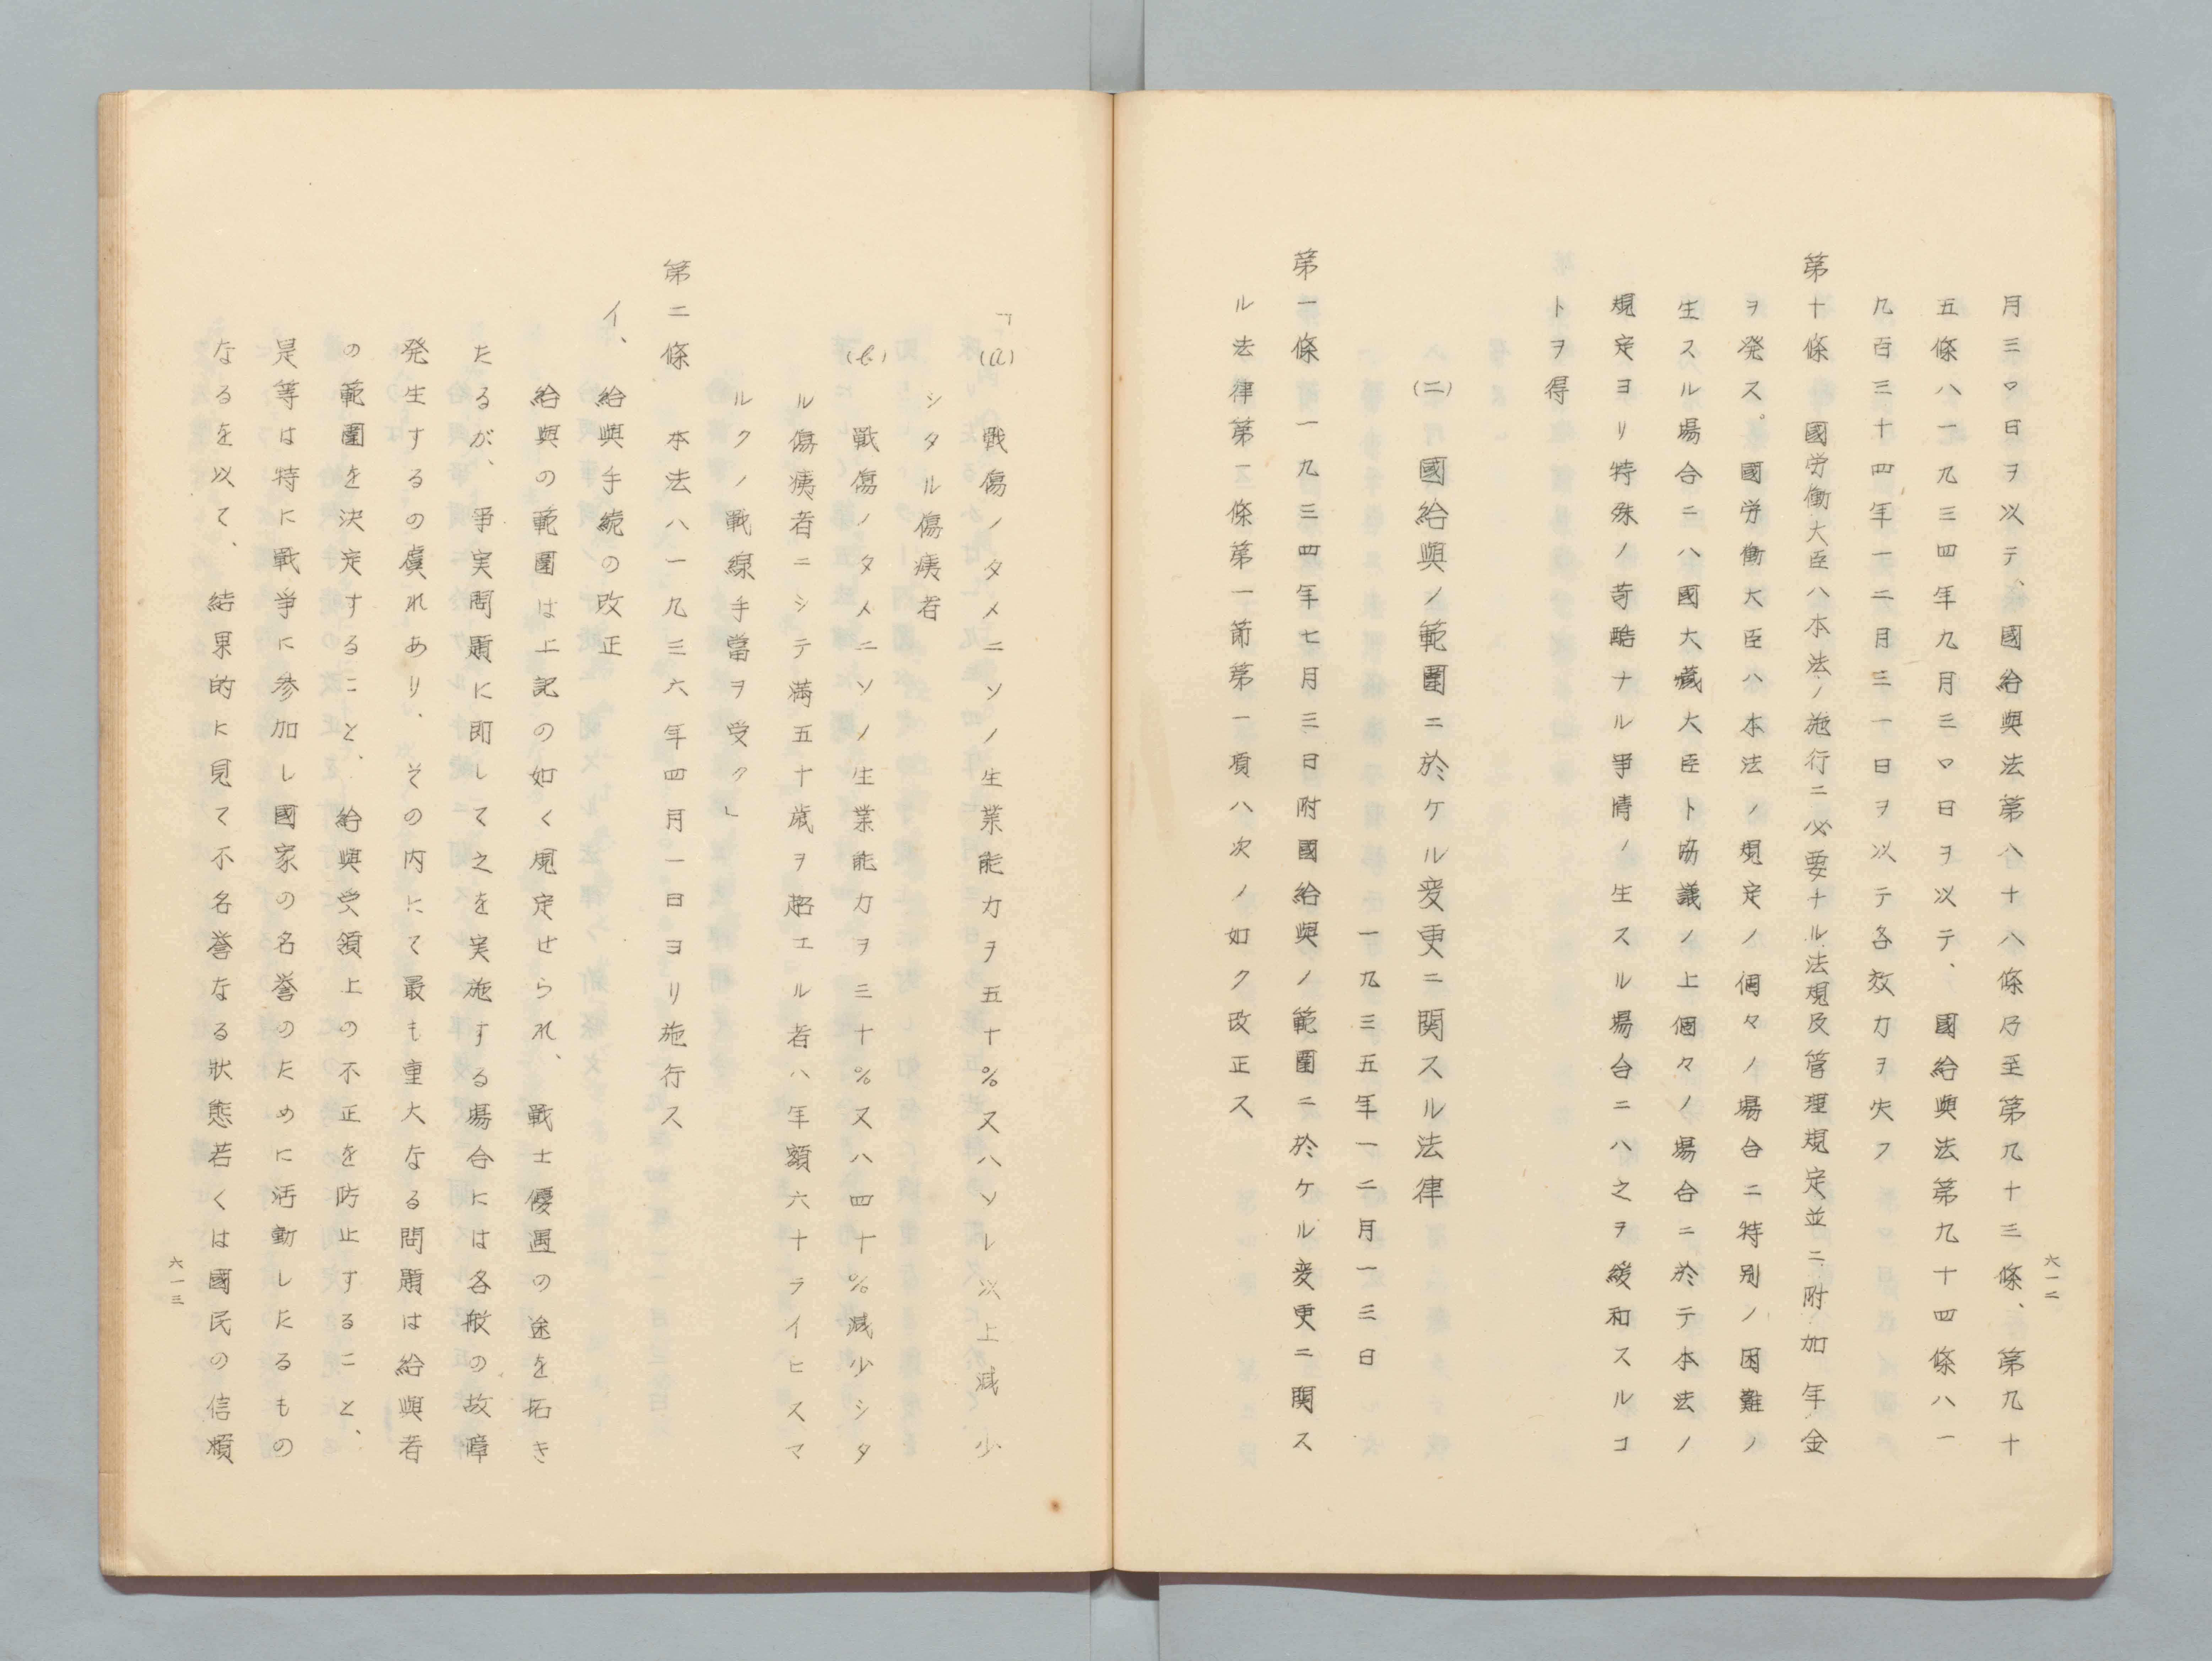 六一二
月三〇日ヲ以テ、國給與法第八十八條乃至第九十三條、第九十
五條ハ一九三四年九月三〇日ヲ以テ、國給與法第九十四條ハ一
九百三十四年一二月三一日ヲ以テ各效力ヲ失フ
第十條　國労働大臣ハ本法ノ施行ニ必要ナル法規及管理規定並ニ附加年金
ヲ発ス。國労働大臣ハ本法ノ規定ノ個々ノ場合ニ特別ノ困難ノ
生スル場合ニハ國大蔵大臣ト協議ノ上個々ノ場合ニ於テ本法ノ
規定ヨリ特殊ノ苛酷ナル事情ノ生スル場合ニハ之ヲ緩和スルコ
トヲ得
(二)　國給與ノ範圍ニ於ケル変更ニ関スル法律
一九三五年一二月一三日
第一條　一九三四年七月三日附國給與ノ範圍ニ於ケル変更ニ関ス
ル法律第一條第一節第一項ハ次ノ如ク改正ス
「(a)　戰傷ノタメニソノ生業能力ヲ五十%又ハソレ以上減少
シタル傷痍者
(b)　戰傷ノタメニソノ生業能力ヲ三十%又ハ四十%減少シタ
ル傷痍者ニシテ満五十歳ヲ超エル者ハ年額六十ライヒスマ
ルクノ戰線手當ヲ受ク」
第二條　本法ハ一九三六年四月一日ヨリ施行ス
イ、給與手続の改正
給與の範圍は上記の如く規定せられ、戰士優遇の途を拓き
たるが、爭実問題に即して之を実施する場合には各般の故障
発生するの虞れあり、その内にて最も重大なる問題は給與者
の範圍を決定すること、給與受領上の不正を防止すること、
是等は特に戰爭に参加し國家の名誉のために活動したるもの
なるを以て、結果的に見て不名誉なる狀態若くは國民の信頼
六一三